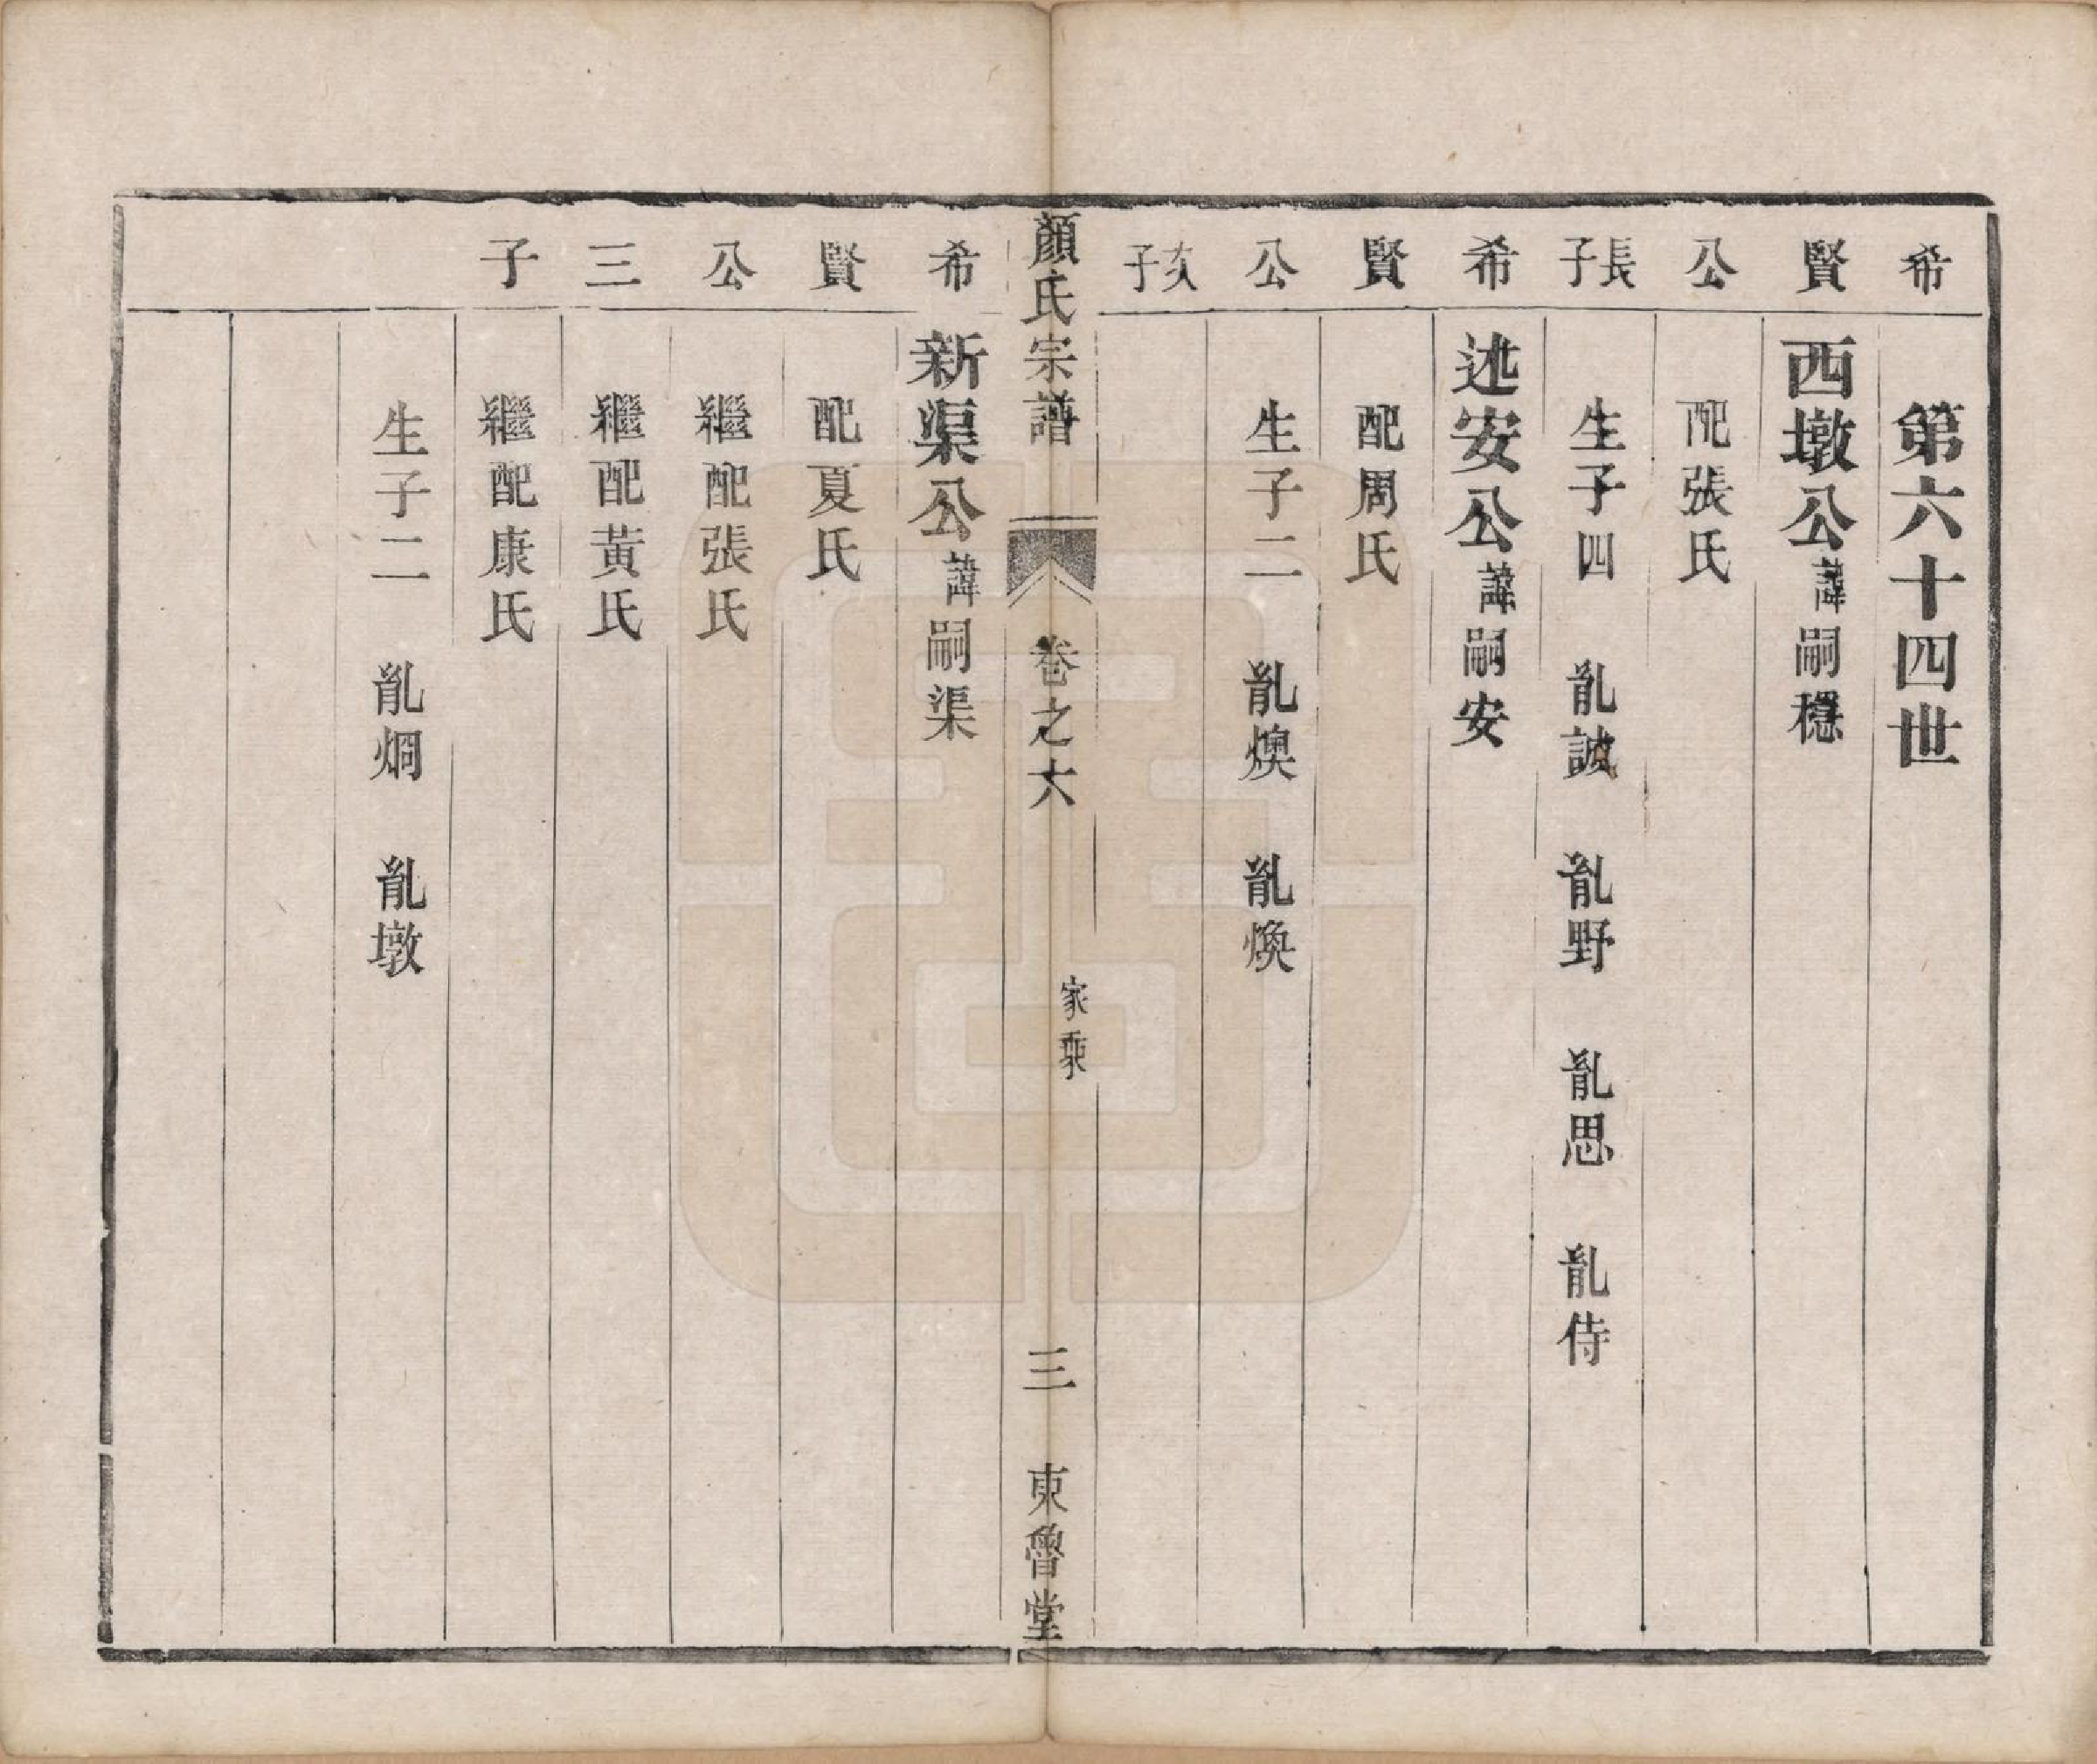 希賢公長子
第六十四世
西墩公諱嗣穩
配張氏
生子四　胤誠　胤野　胤思　胤侍
希賢公次子
述安公諱嗣安
配周氏
生子二　胤燠　胤煥
顏氏宗譜　卷之六　家乘　三　東魯堂
希賢公三子
新渠公諱嗣渠
配夏氏
繼配張氏
繼配黃氏
繼配康氏
生子二　胤烱　胤墩